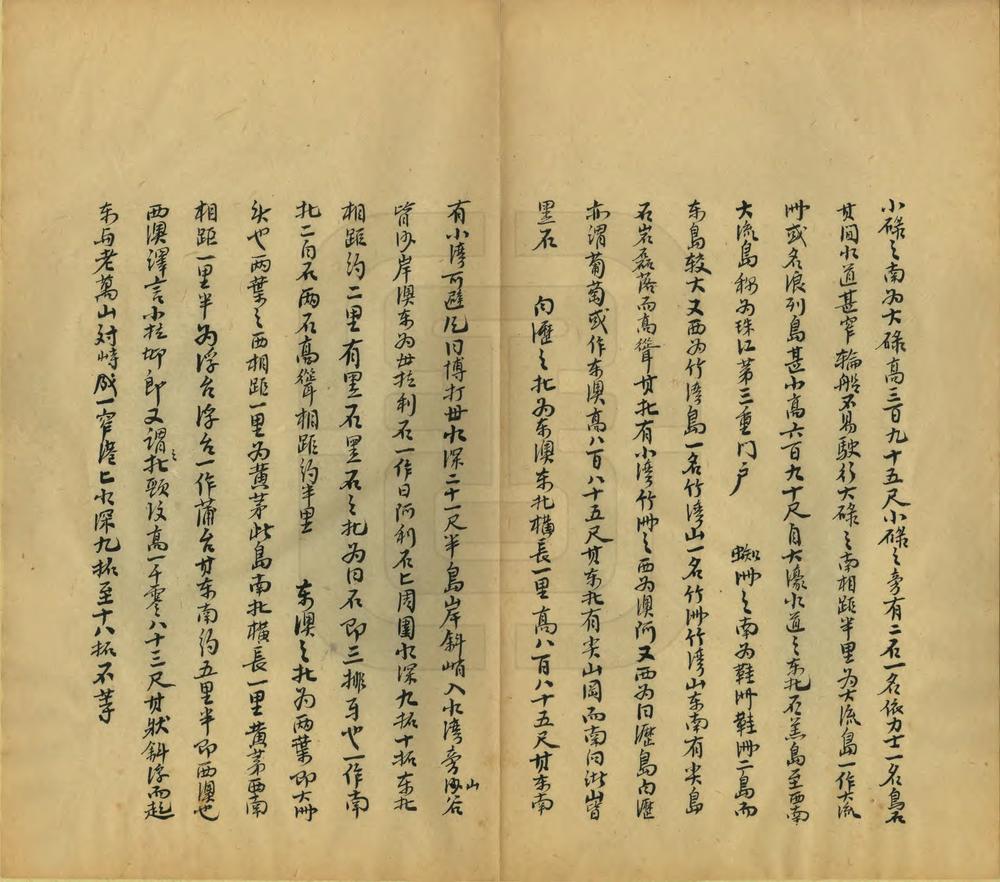 小碌之南为大碌高三百九十五尺小碌之旁有二石一名依力士一名鳥石
其间水道甚窄輪船不易駛行大碌之南相距半里为大流島一作大流
洲或名浪列島甚小高六百九十尺自大濠水道之东北石羔島至西南
大流島称为珠江第三重门户 蜘洲之南为鞋洲鞋洲二島而
东島较大又西为竹湾島一名竹湾山一名竹洲竹湾山东南有尖島
石岩磊落而高聳其北有小湾竹洲之西为澳阿又西为白瀝島白瀝
亦谓葡萄或作东澳高八百八十五尺其东北有尖山岡而南向泚皆
黑石 白瀝之北为东澳东北横長一里高八百八十五尺其东南
有小湾可避风曰博打毋水深二十一尺半島岸斜峭入水湾旁山谷
皆沙岸澳东为毋拉利石一作日阿利石石周圍水深九拓十拓东北
相距约二里有黑石黑石之北为白石即三排牙也一作南
北二白石两石高聳相距约半里 东澳之北为两葉即大洲
头也两葉之西相距一里为黄茅此島南北横長一里黄茅西南
相距一里半为浮台浮台一作蒲台其东南约五里半即西澳也
西澳譯言小拉坤即又谓之北顙没高一千零八十三尺其狀斜浮而起
东与老萬山对峙成一窄港港水深九拓至十八拓不等